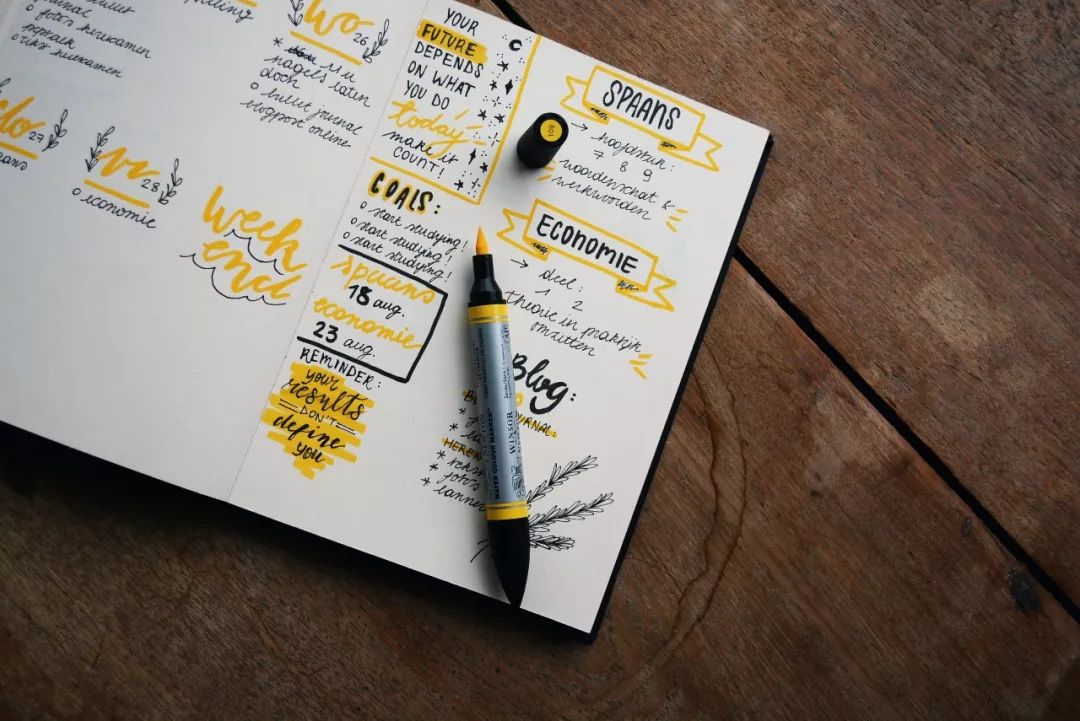 journal
foto's herexamen
herexamen
wo 26
nagels laten
doen
bullet journal
blogpost online
do 27
vr 28
economie
Week
end
YOUR
FUTURE
DEPENDS
ON WHAT
YOU DO
today
make it
COUNT!
GOALS:
start studying!
start studying!
start studying!
spaans
18 aug.
economie
23 aug.
REMINDER:
your
results
DON'T
define
you
SPAANS
→ hoofdstuk:
7 8 9
woordenschat &
werkwoorden
ECONOMIE
→ deel:
1 2
theorie in praktijk
omzetten
Blog:
* foto's
109
WINSOR
WATER COLOUR MARKER